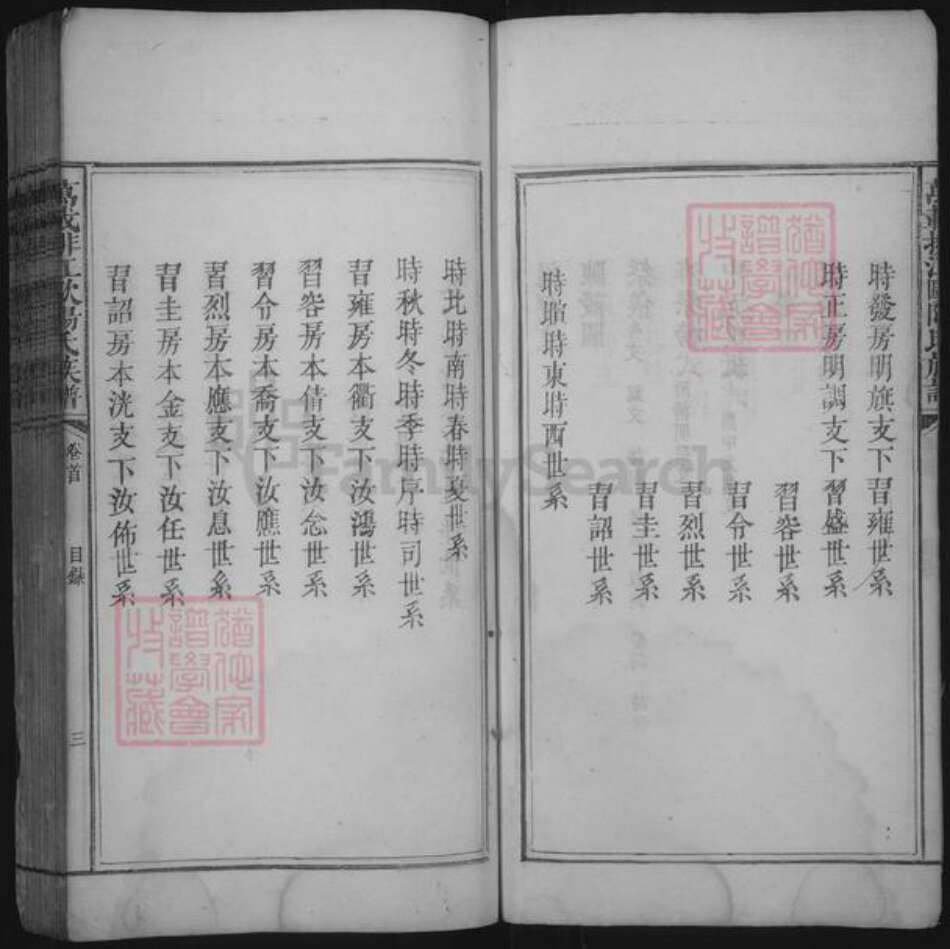 時發房明旗支下習雍世系
時正房明調支下習盛世系
習容世系
習令世系
習烈世系
習圭世系
習詔世系
時昭時東時西世系
時北時南時春時夏世系
時秋時冬時季時序時司世系
習雍房本衢支下汝鴻世系
習容房本倩支下汝念世系
習令房本喬支下汝應世系
習烈房本應支下汝息世系
習圭房本金支下汝任世系
習詔房本洸支下汝佈世系
族譜
卷首
目錄
三
猶他家譜學會收藏
猶他家譜學會收藏
FamilySearch